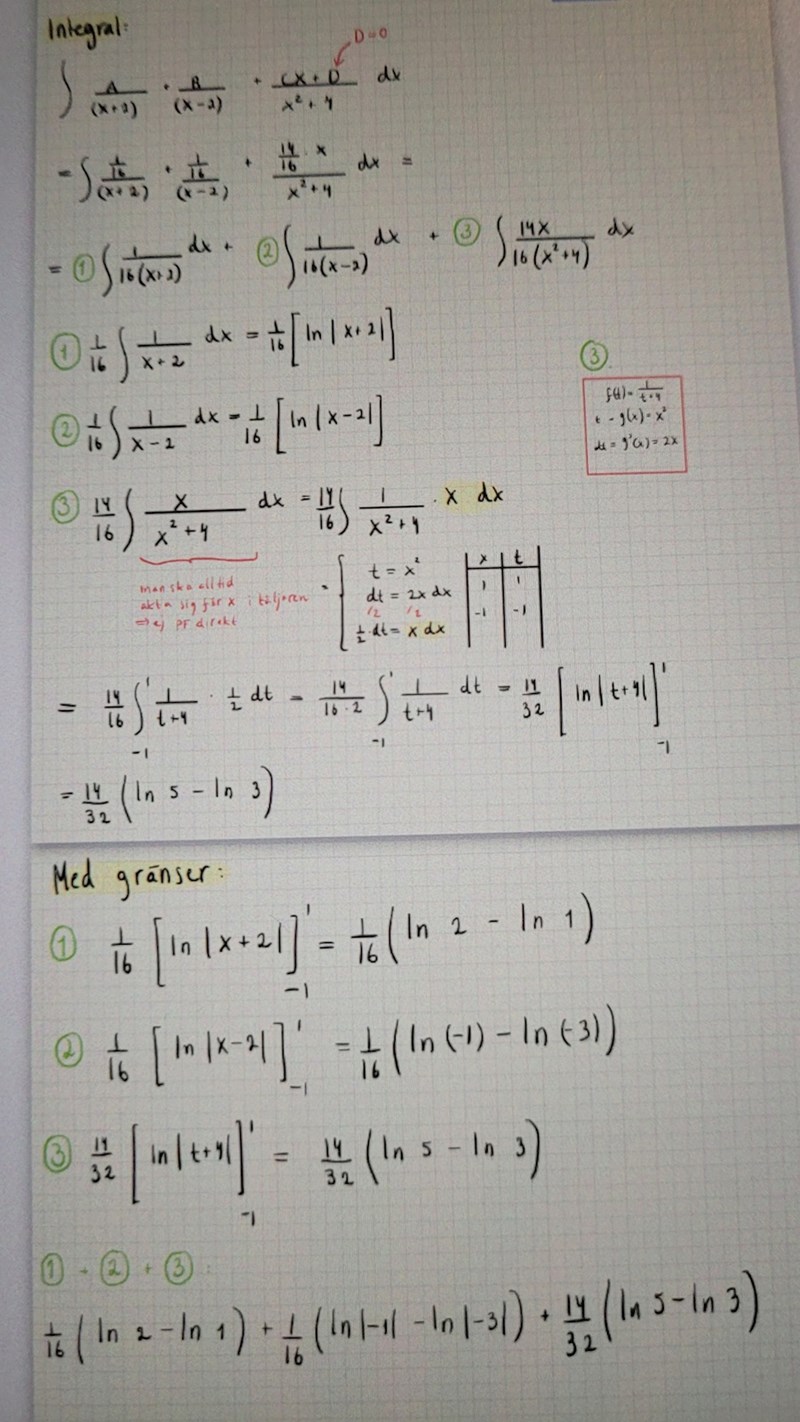 Integral:
D=0
∫ A/(x+2) + B/(x-2) + (Cx+D)/(x²+4) dx
= ∫ (1/16)/(x+2) + (1/16)/(x-2) + (14/16 · x)/(x²+4) dx =
= ① ∫ 1/(16(x+2)) dx + ② ∫ 1/(16(x-2)) dx + ③ ∫ 14x/(16(x²+4)) dx
① 1/16 ∫ 1/(x+2) dx = 1/16 [ln |x+2|]
③
f(t) = 1/(t+4)
t = g(x) = x²
dt = g'(x) = 2x
② 1/16 ∫ 1/(x-2) dx = 1/16 [ln |x-2|]
③ 14/16 ∫ x/(x²+4) dx = 14/16 ∫ 1/(x²+4) · x dx
man ska alltid
akta sig för x i täljaren
⇒ ej PF direkt
= { t = x²
dt = 2x dx
/2 /2
1/2 · dt = x dx
x | t
1 | 1
-1 | -1
= 14/16 ∫₋₁¹ 1/(t+4) · 1/2 dt = 14/(16·2) ∫₋₁¹ 1/(t+4) dt = 14/32 [ln |t+4|]₋₁¹
= 14/32 (ln 5 - ln 3)
Med gränser:
① 1/16 [ln |x+2|]₋₁¹ = 1/16 (ln 2 - ln 1)
② 1/16 [ln |x-2|]₋₁¹ = 1/16 (ln (-1) - ln (-3))
③ 14/32 [ln |t+4|]₋₁¹ = 14/32 (ln 5 - ln 3)
① + ② + ③ :
1/16 (ln 2 - ln 1) + 1/16 (ln |-1| - ln |-3|) + 14/32 (ln 5 - ln 3)